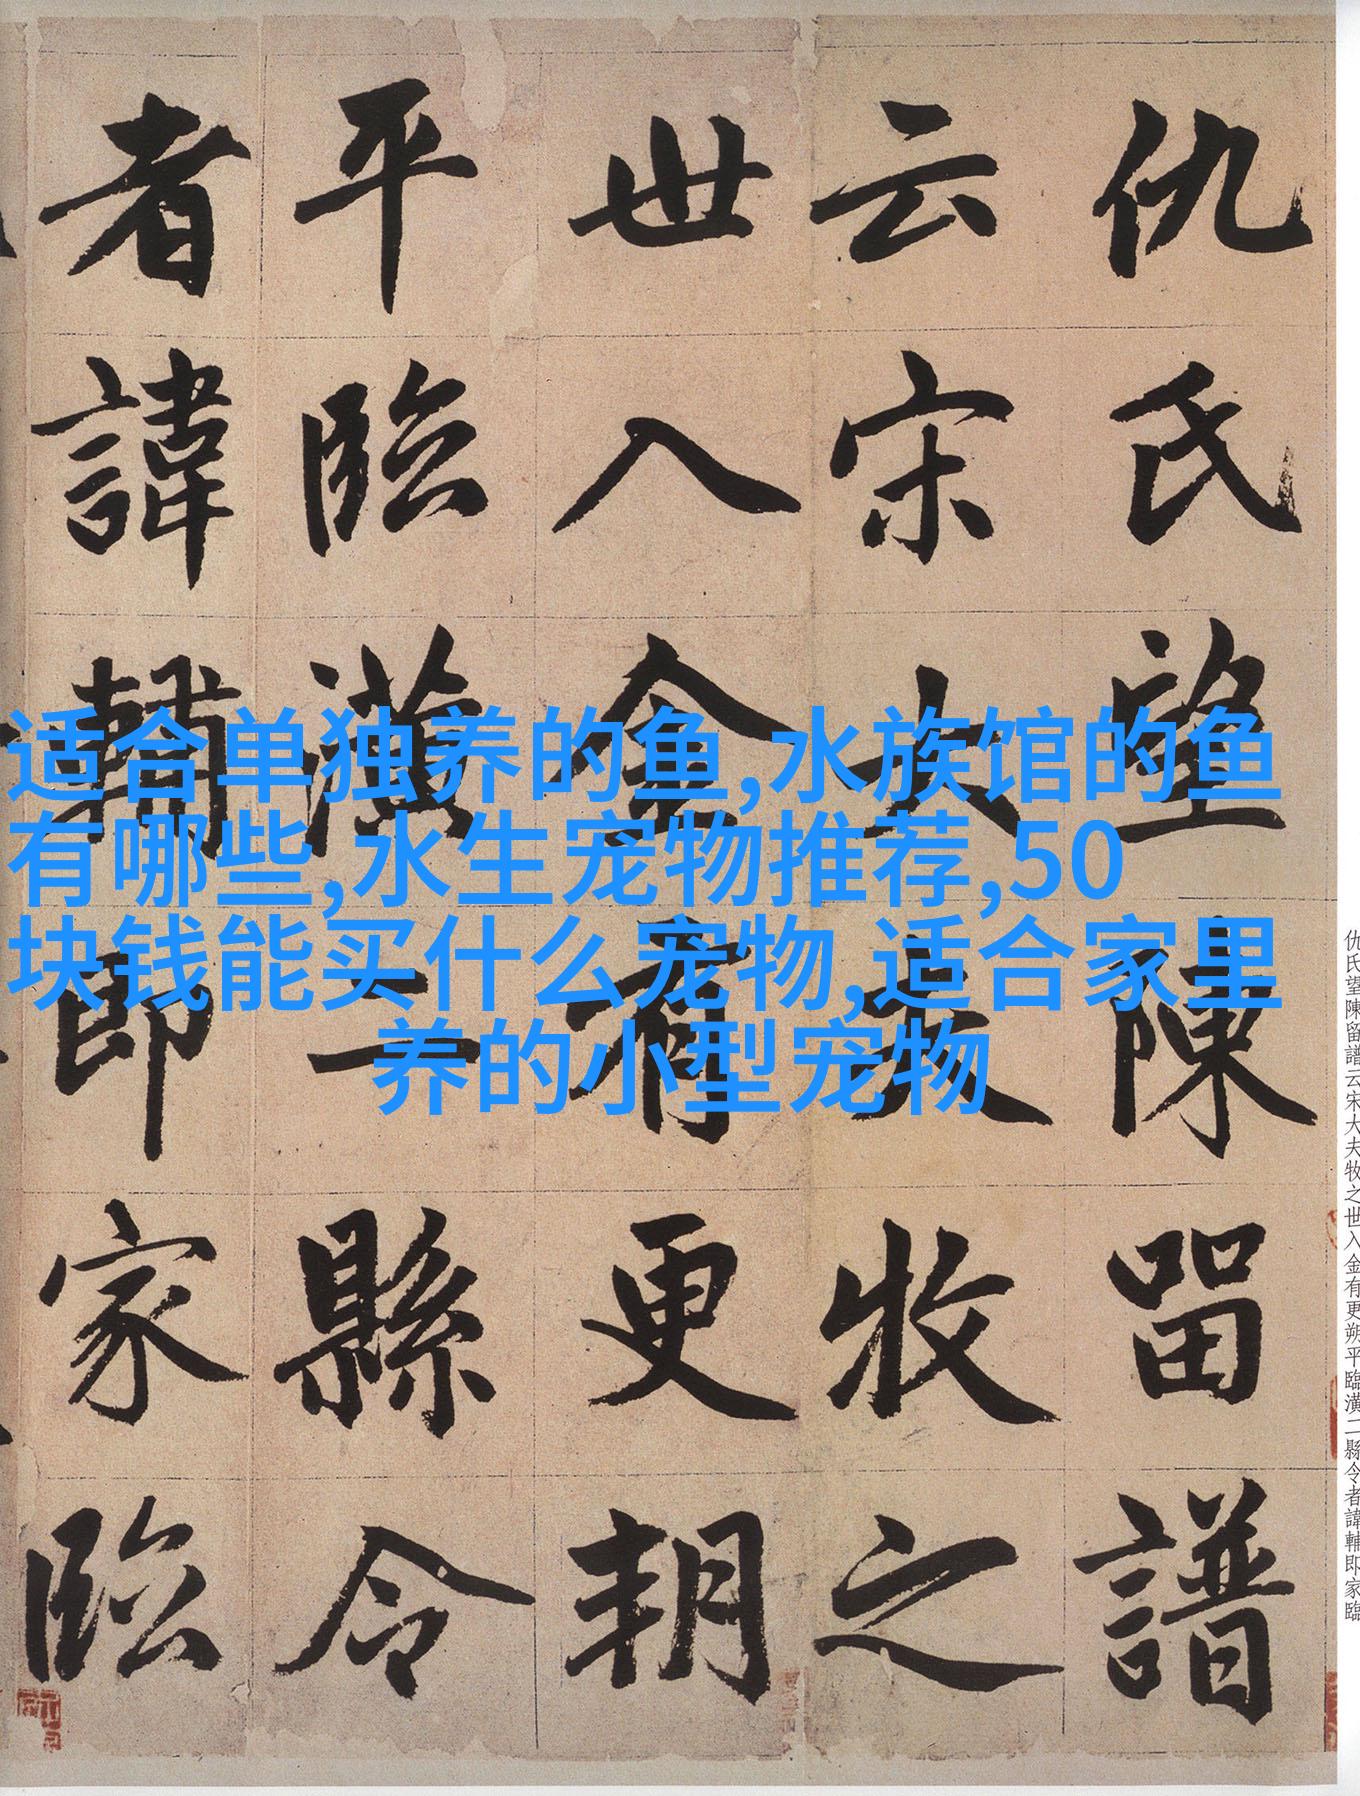 适合单独养的鱼,水族馆的鱼
有哪些,水生宠物推荐,50
块钱能买什么宠物,适合家里
养的小型宠物
仇氏望陳留譜
云宋大夫牧之
世入金有更朔
平臨潢二縣令
者諱輔即家臨
仇氏望陳留譜云宋大夫牧之世入金有更朔平臨潢二縣令者諱輔即家臨